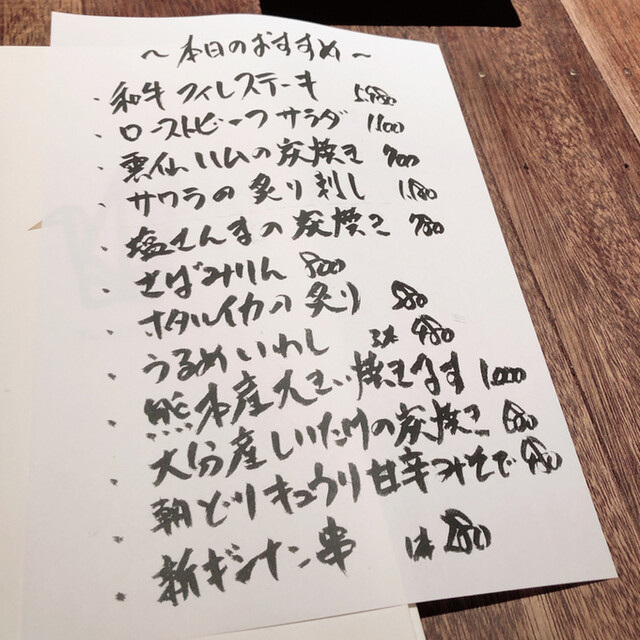 ～本日のおすすめ～
・和牛フィレステーキ
・ローストビーフサラダ 1.100
・雲仙ハムの炭焼き 700
・サワラの炙り刺し 1.180
・塩さんまの炭焼き 780
・さばみりん 800
・ホタルイカの炙り 580
・うるめいわし 3本 480
・熊本産大きい焼きなす 1.000
・大分産しいたけの炭焼き 680
・朝どりキュウリ甘辛みそで 480
・新ギンナン串 1本 280